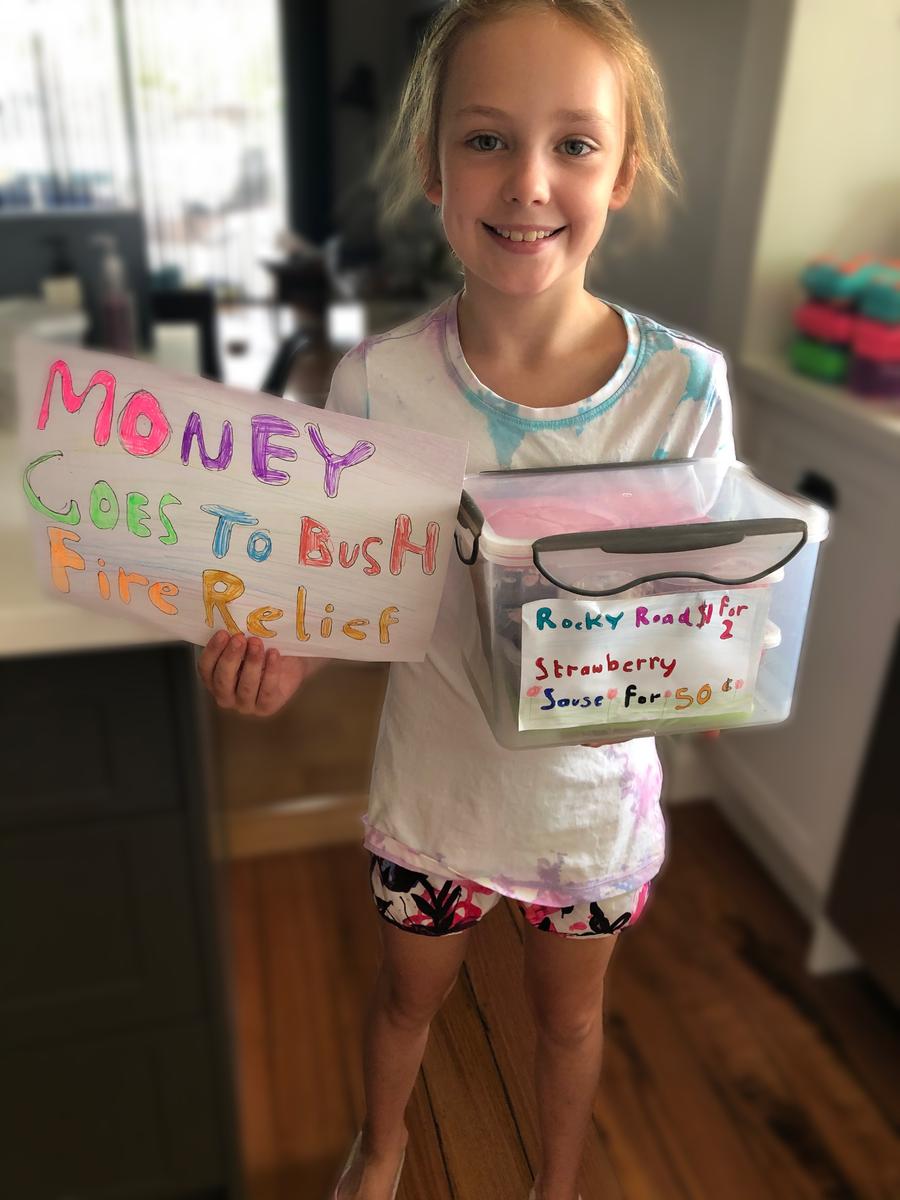 MONEY
GOES To BusH
Fire Relief
Rocky Road $1 for
2
Strawberry
Souse for 50 ¢